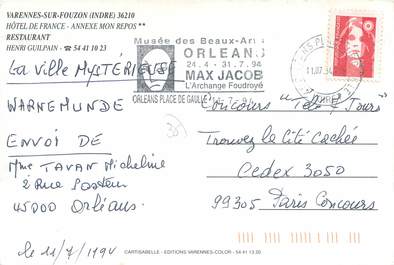 VARENNES-SUR-FOUZON (INDRE) 36210
HÔTEL DE FRANCE - ANNEXE MON REPOS **
RESTAURANT
HENRI GUILPAIN - ☎ 54 41 10 23
La Ville MYSTÉRIEUSE
WARNEMUNDE
ENVOI DE
Mme TAVAN Micheline
2 Rue Pasteur
45000 Orléans.
le 11/7/1994
Musée des Beaux-Arts
ORLEANS
24.4 - 31.7.94
MAX JACOB
L'Archange Foudroyé
ORLEANS PLACE DE GAULLE
Concours "Télé 7 Jours"
Trouvez la Cité Cachée
Cedex 3050
99305 Paris Concours
CARTISABELLE - EDITIONS VARENNES-COLOR - 54 41 13 20